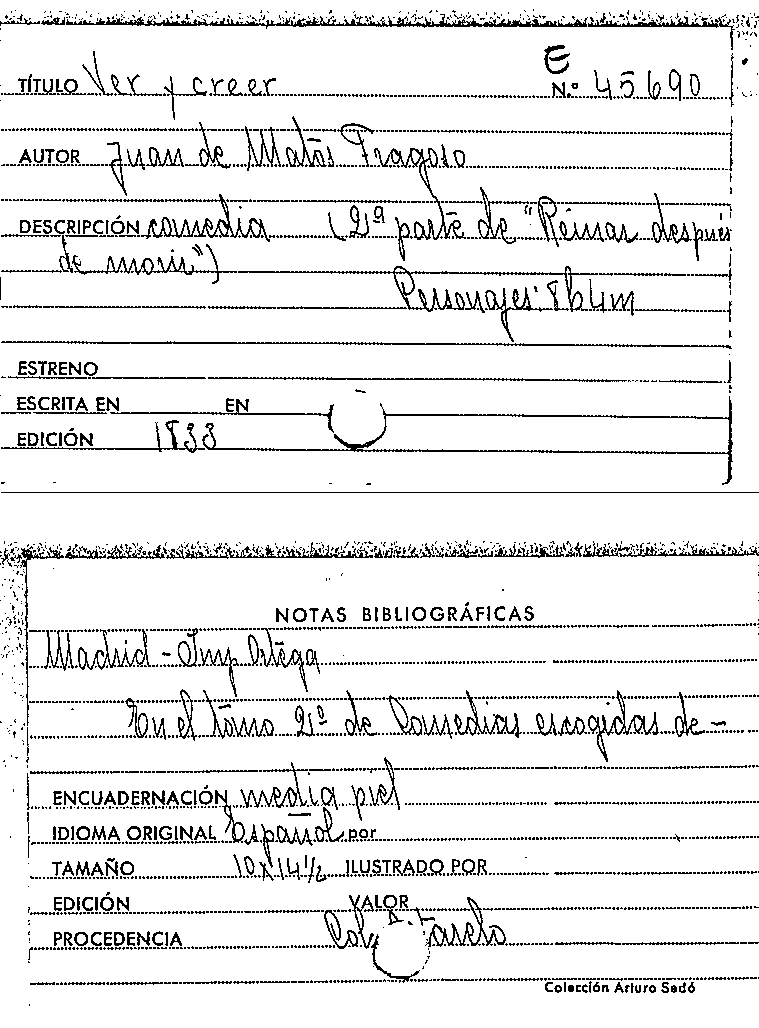 E
TÍTULO Ver y creer N.º 45690
AUTOR Juan de Matos Fragoso
DESCRIPCIÓN comedia (2ª parte de "Reinar después
de morir")
Personajes: 8h4m
ESTRENO
ESCRITA EN EN
EDICIÓN 1833
NOTAS BIBLIOGRÁFICAS
Madrid - Imp Ortega
En el tomo 2º de Comedias escogidas de -
ENCUADERNACIÓN media piel
IDIOMA ORIGINAL Español por
TAMAÑO 10x14½ ILUSTRADO POR
EDICIÓN VALOR
PROCEDENCIA
Colección Arturo Sedó